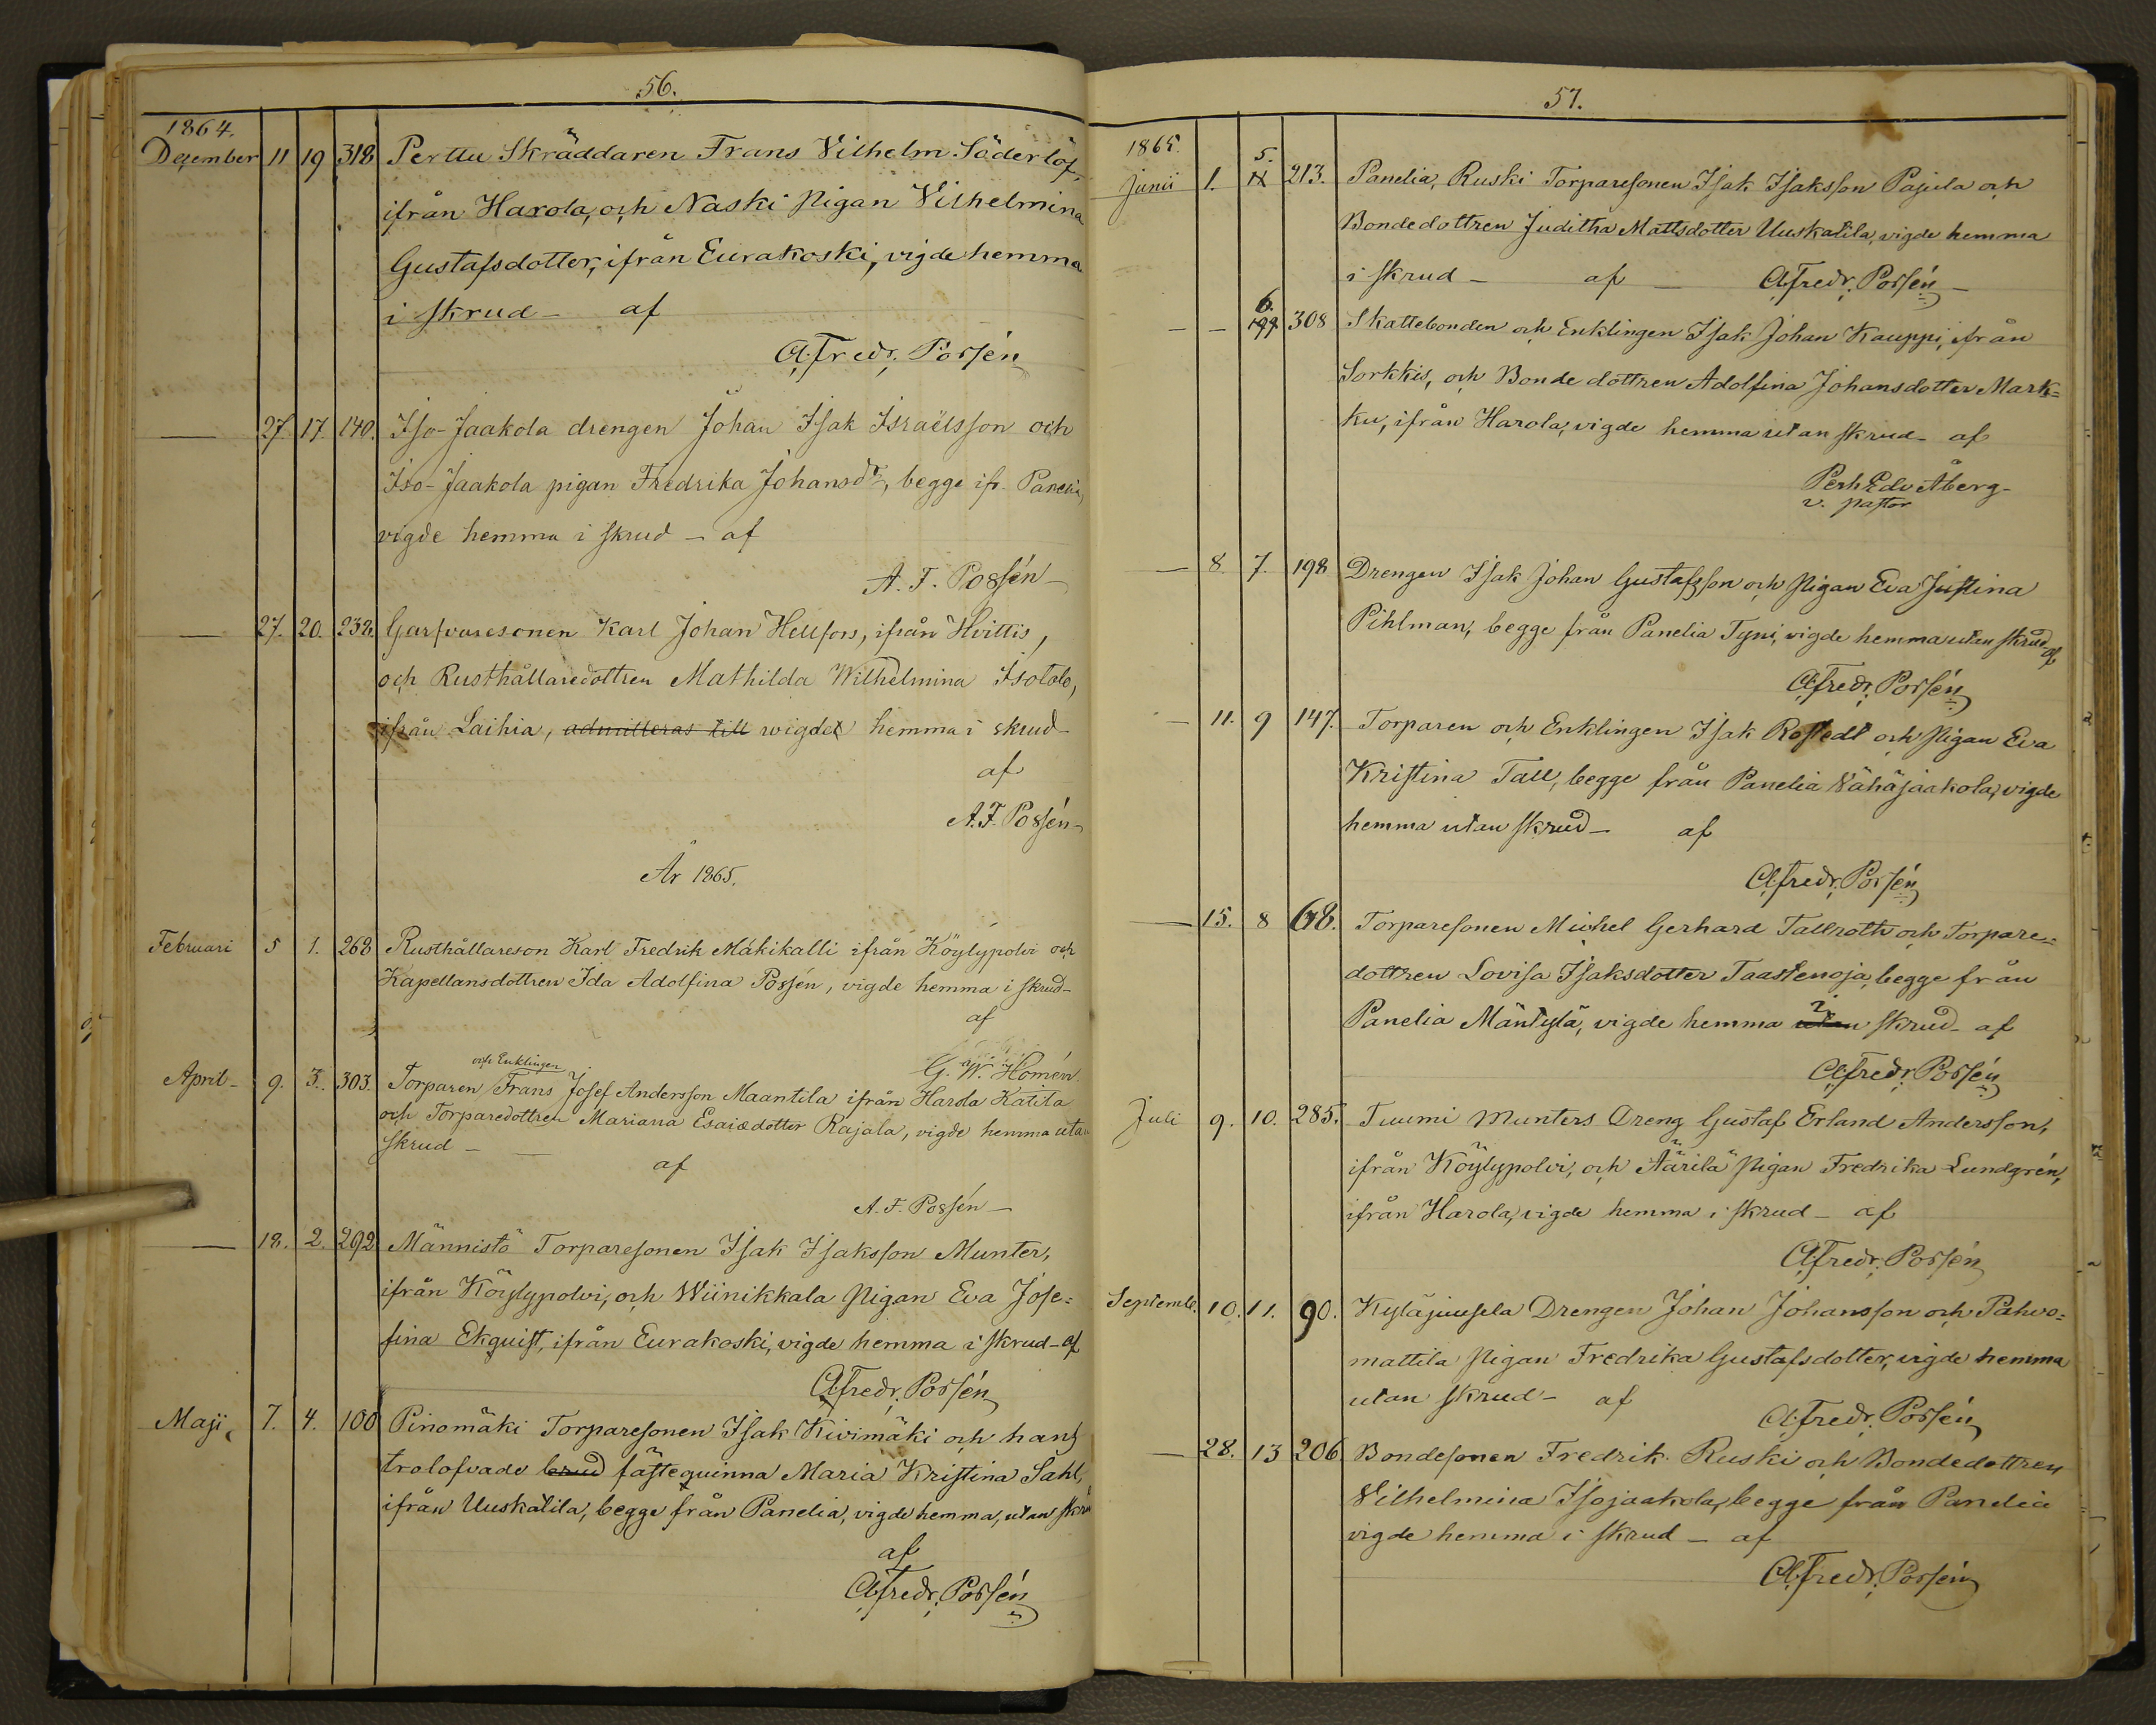 56.
1864.
December 11 19 318 Perttu Skräddaren Frans Vilhelm Söderlöf,
ifrån Harola, och Naski Pigan Vilhelmina
Gustafsdotter, ifrån Eurakoski, vigde hemma
i skrud – af
A. Fredr. Possén
— 27. 17. 140. Iso-Jaakola drengen Johan Isak Israëlsson och
Iso-Jaakola pigan Fredrika Johansdr, begge ifr. Panelia,
vigde hemma i skrud – af
A. F. Possén –
— 27. 20. 232. Garfvaresonen Karl Johan Hellfors, ifrån Hvittis,
och Rusthållaredottren Mathilda Wilhelmina Isotalo,
ifrån Laihia, admitteras till wigdes hemma i skrud
af
A. F. Possén –
År 1865.
Februari 5 1. 268 Rusthållareson Karl Fredrik Mäkikalli ifrån Köylypolvi och
Kapellansdottren Ida Adolfina Possén, vigde hemma i skrud –
af
G. W. Homén.
och Enklingen
April – 9. 3. 303. Torparen Frans Josef Andersson Maantila ifrån Harola Katila
och Torparedottren Mariana Esaiædotter Rajala, vigde hemma utan
skrud – —
af
A. F. Possén –
— 18. 2. 292 Männistö Torparesonen Isak Isaksson Munter,
ifrån Köylypolvi, och Wiinikkala Pigan Eva Jose=
fina Ekquist, ifrån Eurakoski, vigde hemma i skrud – af
A. Fredr. Possén
Maji 7. 4. 100 Pinomäki Torparesonen Isak Kivimäki och hans
trolofvade brud fästequinna Maria Kristina Sahl,
ifrån Uuskatila, begge från Panelia, vigde hemma, utan skrud
af
A. Fredr. Possén
57.
1865.
Junii 1. 5. 213. Panelia, Ruski Torparesonen Isak Isaksson Pajula och
Bondedottren Juditha Mattsdotter Uuskatila, vigde hemma
i skrud – af – A. Fredr. Possén –
— – 6. 308 Skattebonden och Enklingen Isak Johan Kauppi, ifrån
Sorkkis, och Bondedottren Adolfina Johansdotter Mark=
ku, ifrån Harola, vigde hemma utan skrud – af
Perh Edv Åberg –
v. pastor
— 8. 7. 198 Drengen Isak Johan Gustafsson och Pigan Eva Justina
Pihlman, begge från Panelia Tyni, vigde hemma utan skrud af
A. Fredr. Possén
— 11. 9 147. Torparen och Enklingen Isak Rostedt och Pigan Eva
Kristina Tall, begge från Panelia Vähäjaakola, vigde
hemma utan skrud – af
A. Fredr. Possén
— 15. 8 68. Torparesonen Michel Gerhard Tallroth och Torpare=
dottren Lovisa Isaksdotter Taastenoja, begge från
i
Panelia Mäntylä, vigde hemma utan skrud – af
A. Fredr. Possén
Juli 9. 10. 285. Tuumi Munters Dreng Gustaf Erland Andersson,
ifrån Köylypolvi, och Äärilä Pigan Fredrika Lundgrén,
ifrån Harola, vigde hemma i skrud – af
A. Fredr. Possén
Septemb. 10. 11. 90. Kyläjuusela Drengen Johan Johansson och Pahvo=
mattila Pigan Fredrika Gustafsdotter, vigde hemma
utan skrud – af
A. Fredr. Possén
— 28. 13 206 Bondesonen Fredrik Ruski och Bondedottren
Vilhelmina Isojaakola, begge från Panelia
vigde hemma i skrud – af
A. Fredr. Possén